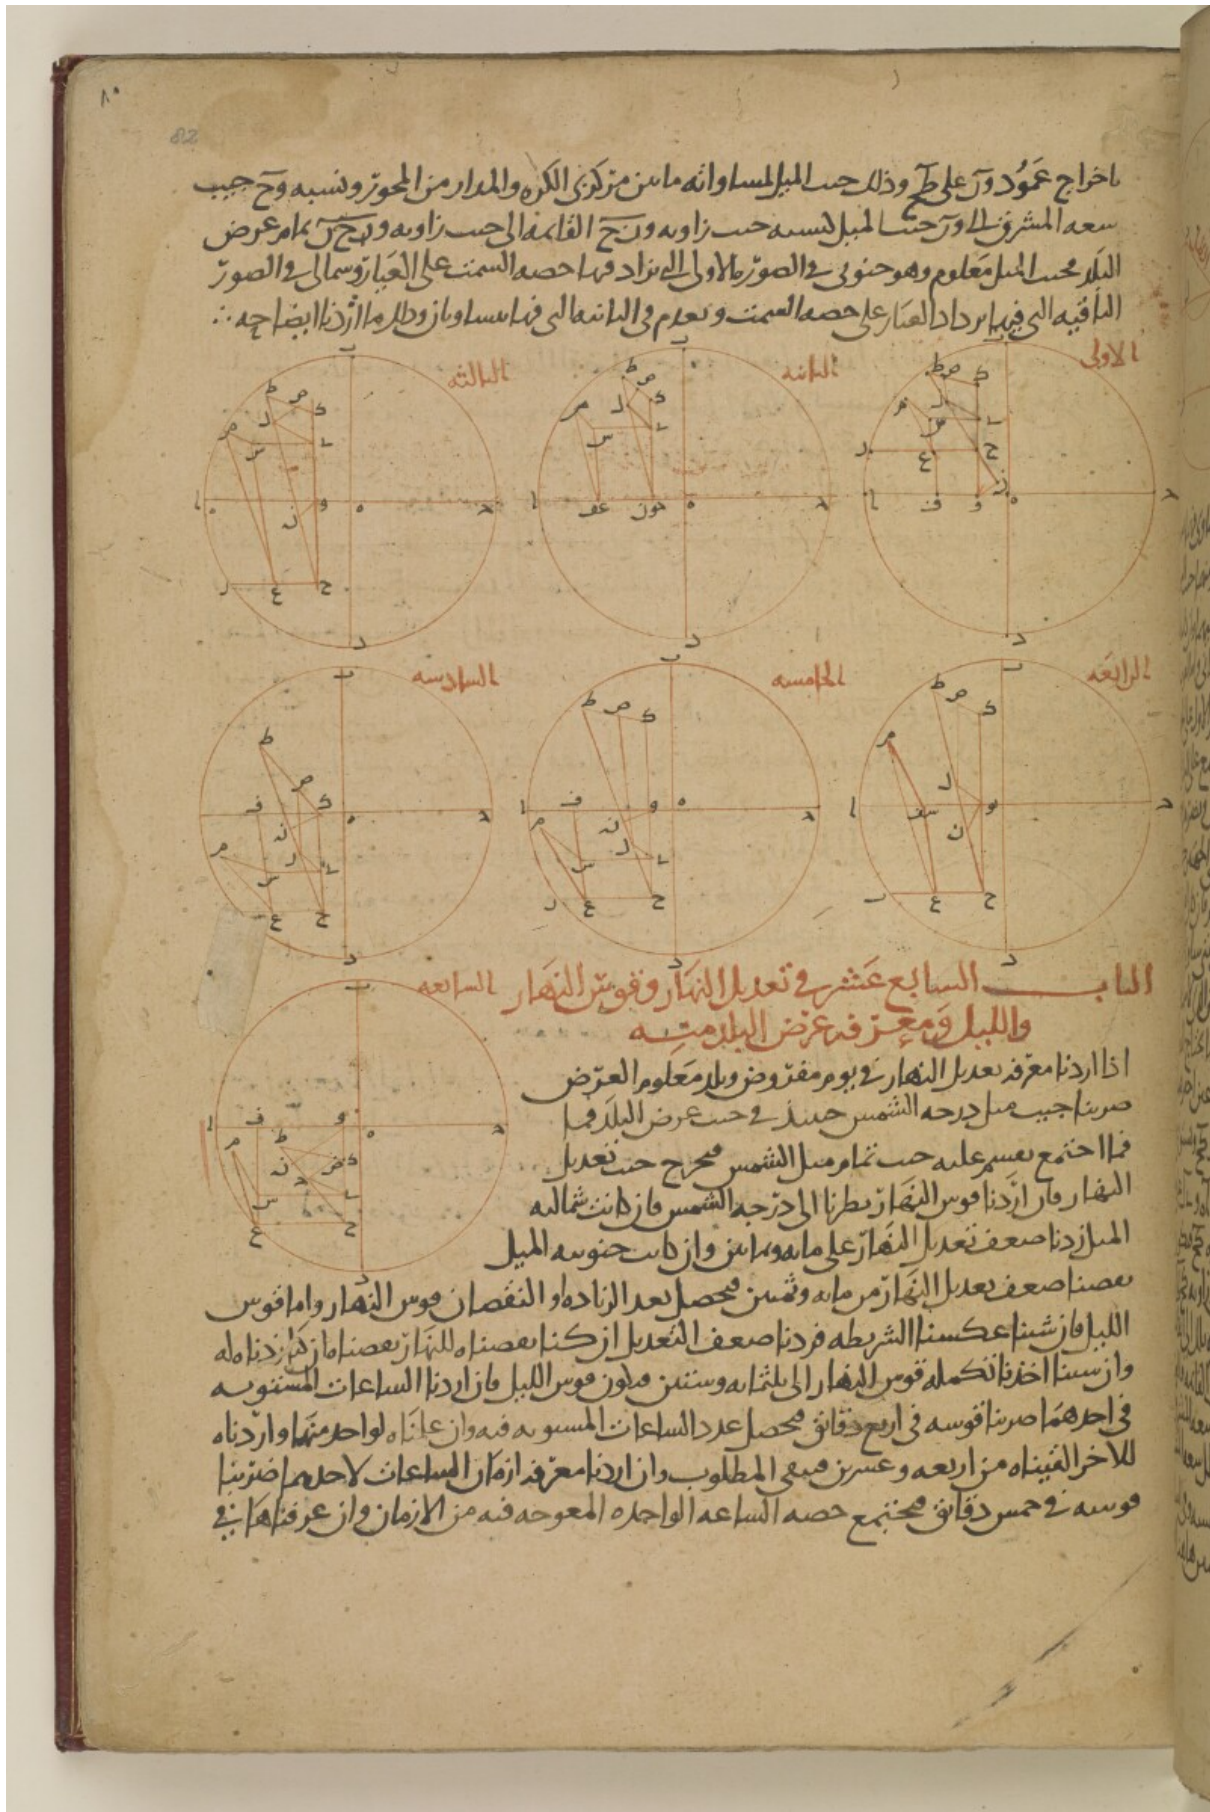 باخراج عمود ون على طح وذلك جيب الميل لمساواته ما بين مركزى الكره والمدار من المحور ونسبه وح جيب
سعه المشرق الى ون جيب الميل كنسبه جيب زاويه ونح القائمه الى جيب زاويه وحن تمام عرض
البلد فجيب الميل معلوم وهو جنوبى فى الصوره الاولى التى يزاد فيها حصه السمت على العيار وشمالى فى الصور
الباقيه التى فيها يزداد العيار على حصه السمت ويعدم فى الثانيه التى فيها يتساويان وذلك ما اردنا ايضاحه
الاولى
الثانيه
الثالثه
الرابعه
الخامسه
السادسه
الباب السابع عشر فى تعديل النهار وقوس النهار
السابعه
والليل ومعرفه عرض البلد منه
اذا اردنا معرفه تعديل النهار فى يوم مفروض وبلد معلوم العرض
ضربنا جيب ميل درجه الشمس حينئذ فى جيب عرض البلد فما
فما اجتمع نقسم عليه جيب تمام ميل الشمس فيخرج جيب تعديل
النهار فان اردنا قوس النهار نظرنا الى درجه الشمس فان كانت شماليه
الميل زدنا ضعف تعديل النهار على مايه وثمانين وان كانت جنوبيه الميل
نقصنا ضعف تعديل النهار من مايه وثمنين فيحصل بعد الزياده او النقصان قوس النهار واما قوس
الليل فان شئنا عكسنا الشريطه فزدنا ضعف التعديل ان كنا نقصناه للنهار ونقصناه ان كنا زدناه له
وان شئنا اخذنا تكمله قوس النهار الى ثلثمايه وستين فيكون قوس الليل فان اردنا الساعات المستويه
فى احدهما ضربنا قوسه فى اربع دقائق فيحصل عدد الساعات المستويه فيه وان علمناه لواحد منهما واردناه
للاخر القيناه من اربعه وعشرين فيبقى المطلوب وان اردنا معرفه ازمان الساعات لاحدهما ضربنا
قوسه فى خمس دقائق فيجتمع حصه الساعه الواحده المعوجه فيه من الازمان وان عرفناها فى